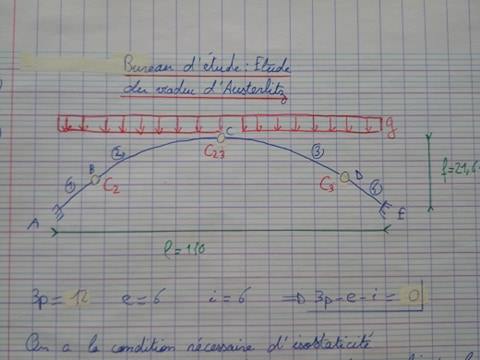 Bureau d'étude : Etude
du viaduc d'Austerlitz
q
C
② ③
B C23 D
① C2 C3 ④
A E
l = 110
3p = 12 e = 6 i = 6 => 3p-e-i = 0
On a la condition nécessaire d'isostaticité